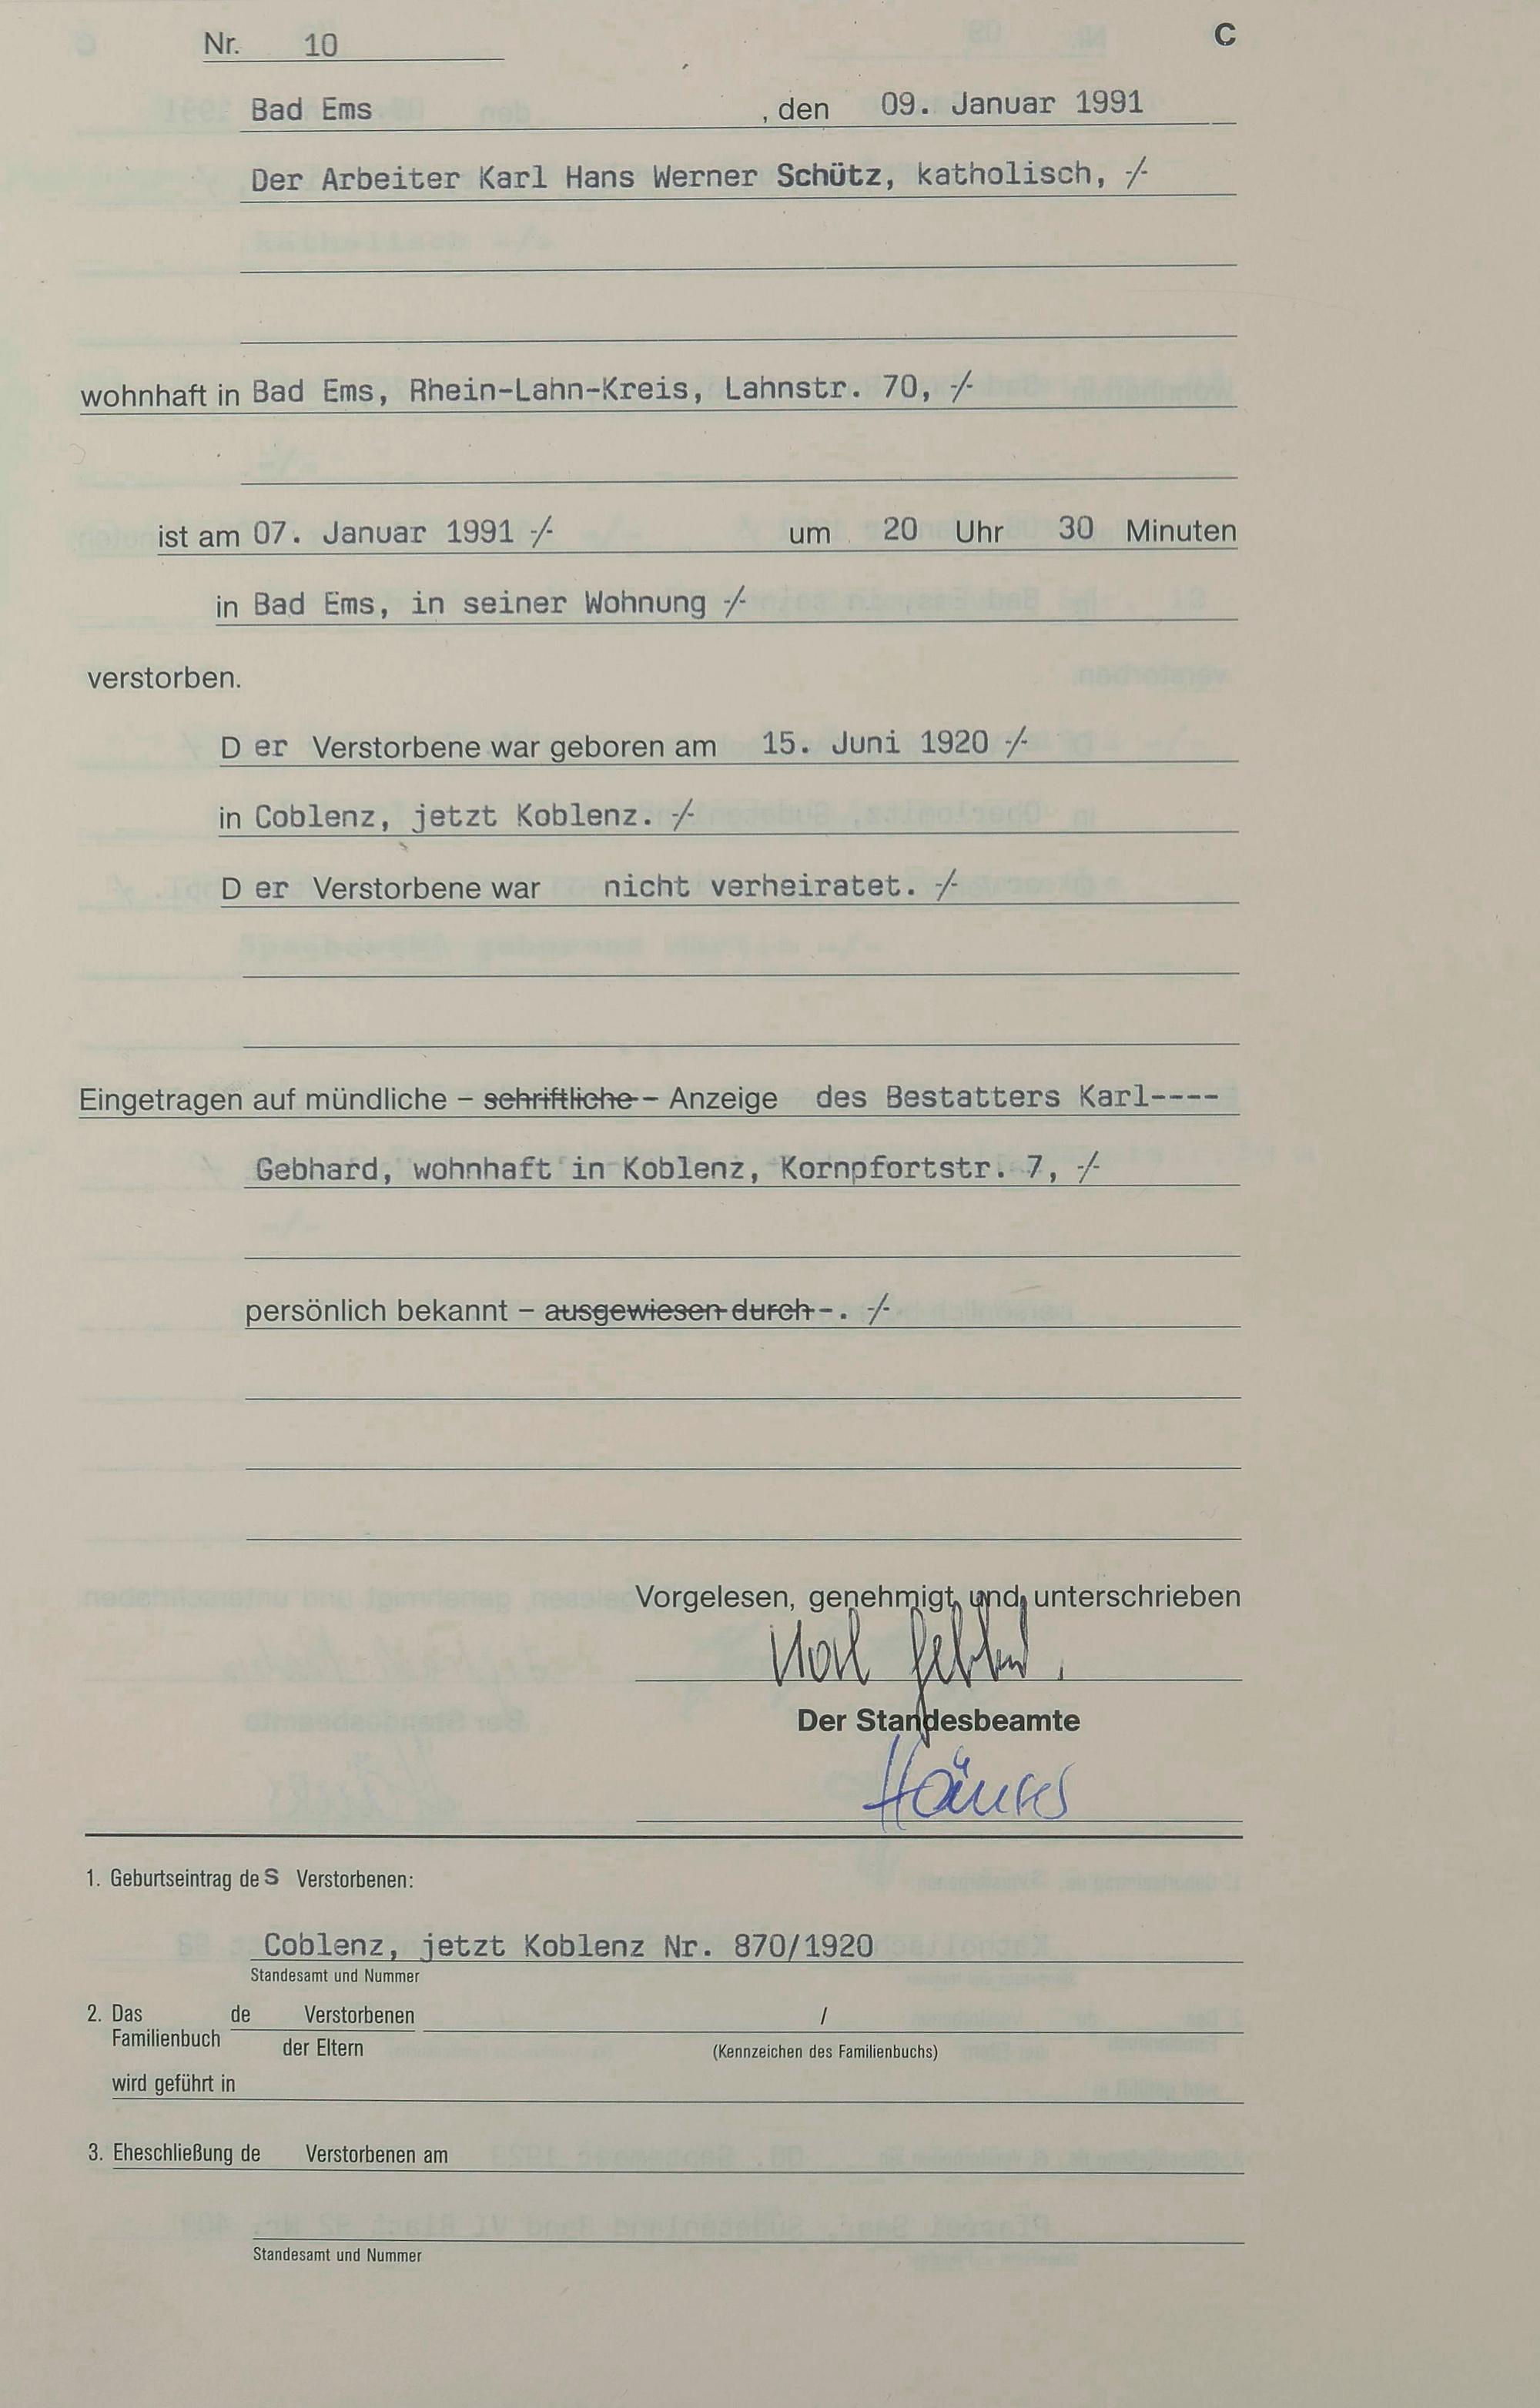 Nr. 10 C
Bad Ems , den 09. Januar 1991
Der Arbeiter Karl Hans Werner Schütz, katholisch, -/-
wohnhaft in Bad Ems, Rhein-Lahn-Kreis, Lahnstr. 70, -/-
ist am 07. Januar 1991 -/- um 20 Uhr 30 Minuten
in Bad Ems, in seiner Wohnung -/-
verstorben.
D er Verstorbene war geboren am 15. Juni 1920 -/-
in Coblenz, jetzt Koblenz. -/-
D er Verstorbene war nicht verheiratet. -/-
Eingetragen auf mündliche – schriftliche – Anzeige des Bestatters Karl----
Gebhard, wohnhaft in Koblenz, Kornpfortstr. 7, -/-
persönlich bekannt – ausgewiesen durch -. -/-
Vorgelesen, genehmigt und unterschrieben
Karl Gebhard
Der Standesbeamte
1. Geburtseintrag des Verstorbenen:
Coblenz, jetzt Koblenz Nr. 870/1920
Standesamt und Nummer
2. Das de Verstorbenen /
Familienbuch der Eltern (Kennzeichen des Familienbuchs)
wird geführt in
3. Eheschließung de Verstorbenen am
Standesamt und Nummer